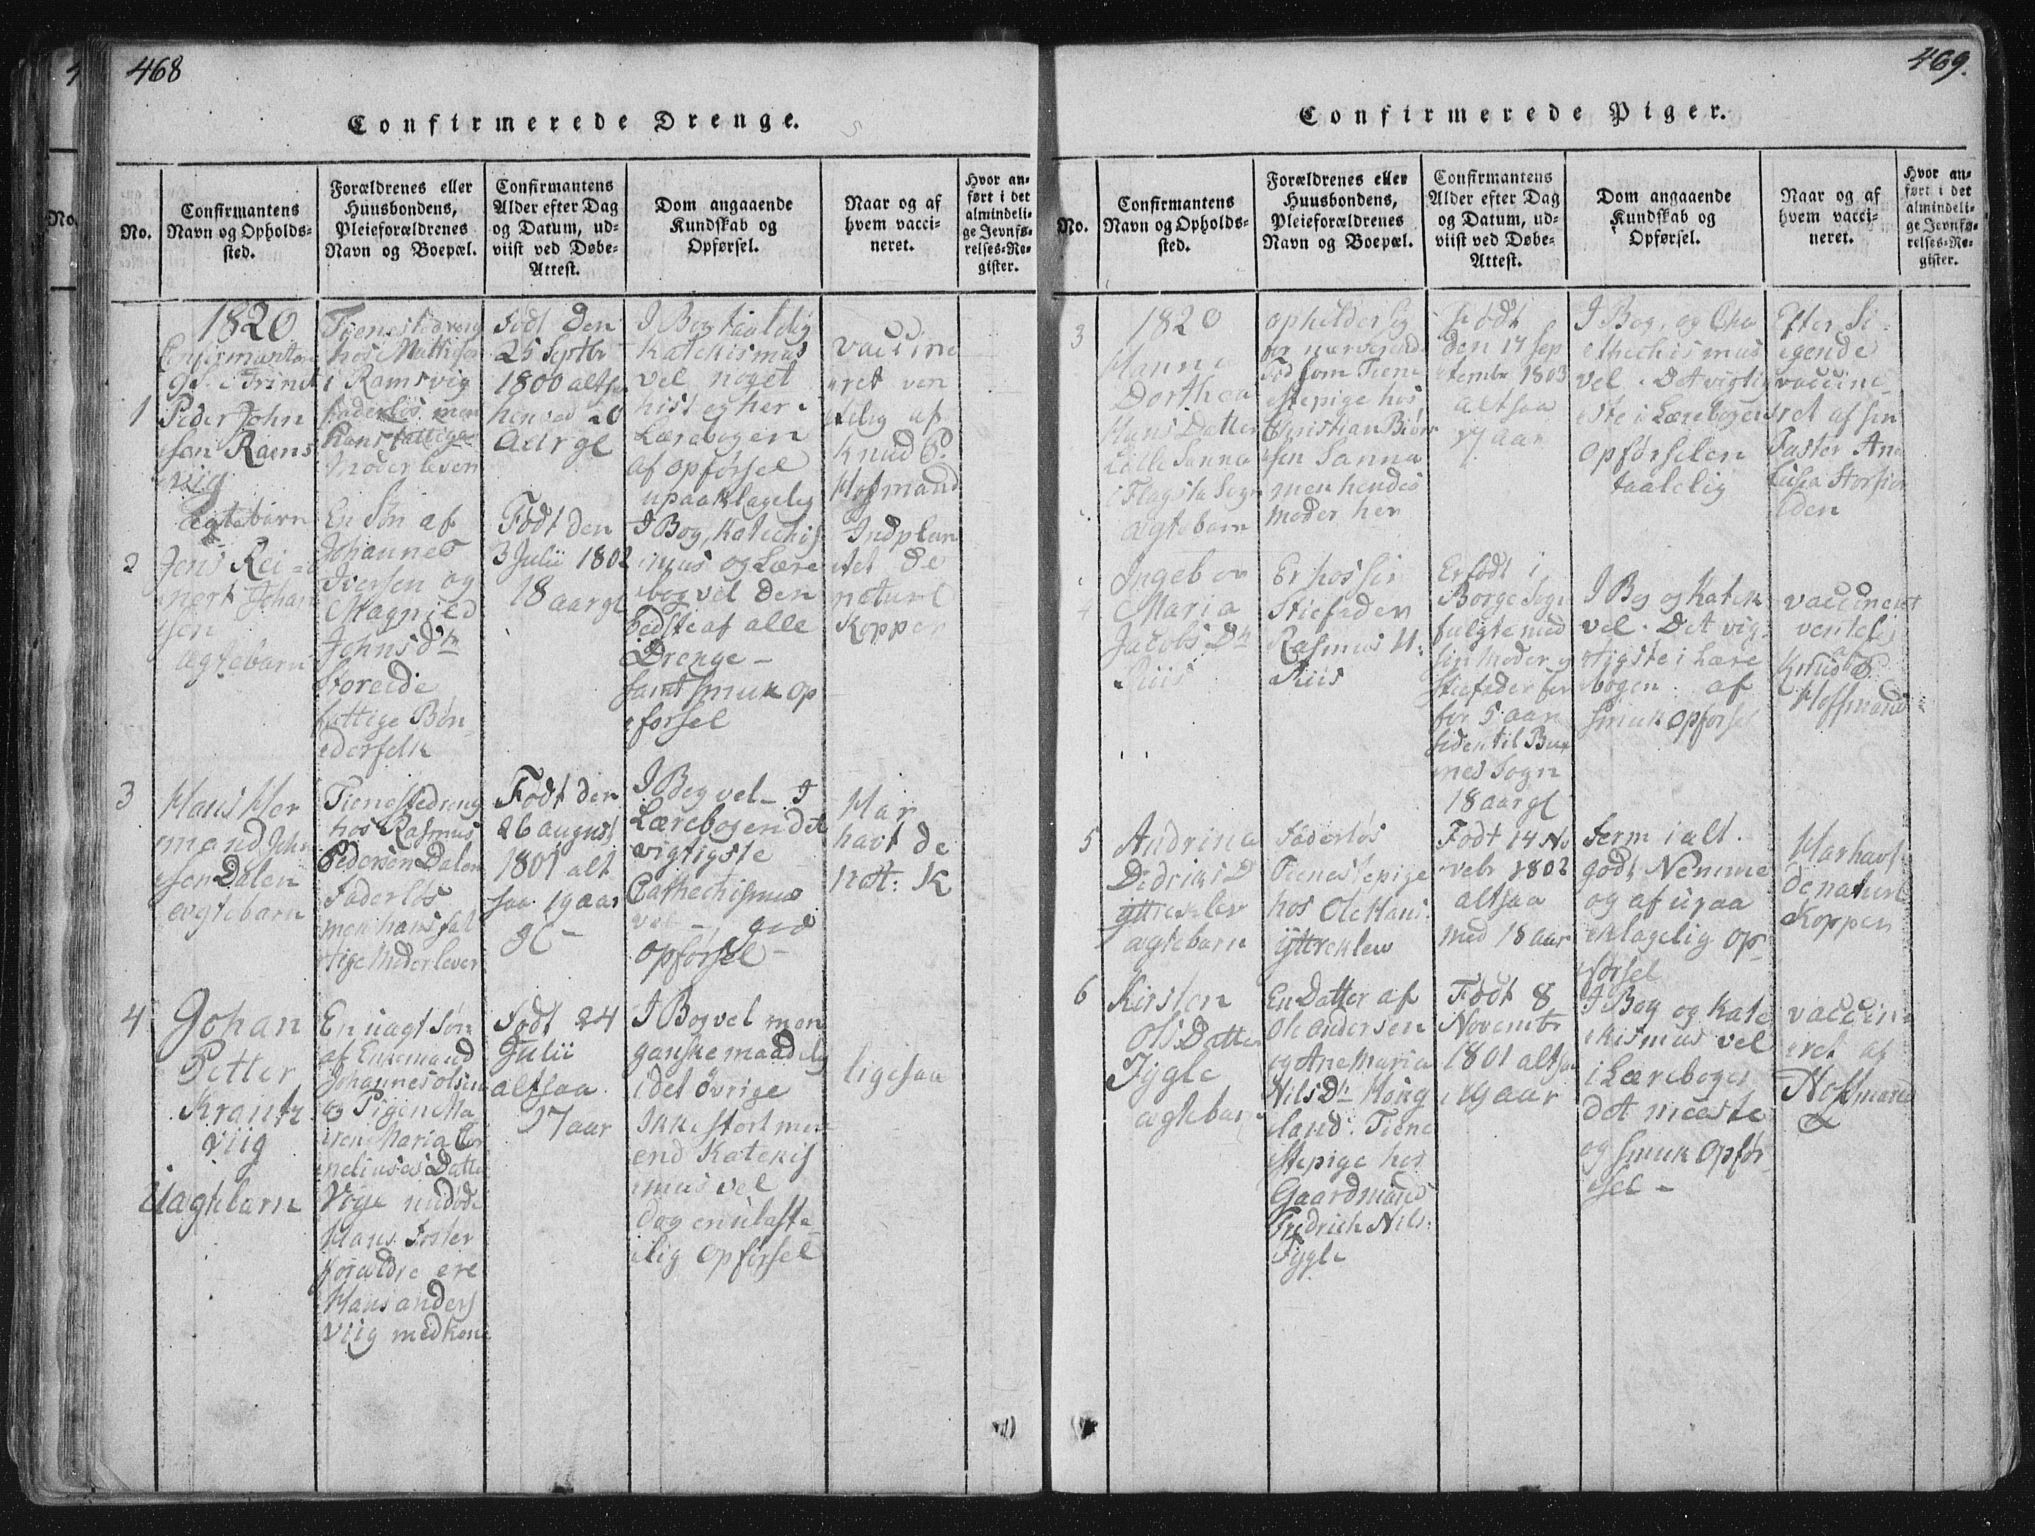 468
Confirmerede Drenge.
No.
Confirmantens
Navn og Opholds-
sted.
Forældrenes eller
Huusbondens,
Pleieforældrenes
Navn og Boepæl.
Confirmantens
Alder efter Dag
og Datum, ud-
viist ved Døbe-
Attest.
Dom angaaende
Kundskab og
Opførsel.
Naar og af
hvem vacci-
neret.
Hvor an-
ført i det
almindeli-
ge Jevnfø-
relses-Re-
gister.
1820
1
Peder John
sen Rams
viig
ægtebarn
Tienestedreng
hos Mattis
i Ramsvig
faderløs men
hans fattige
Moder lever
Født den
25 Septbr
1800 altsaa
henved 20
Aar gl
I Bog taalelig
Katekismus
vel noget
hist og her i
Lærebogen
af opførsel
upaaklagelig
vaccine
ret ven
telig af
Knud P.
Hofmand
2
Jens Rei
nert Johan
sen
ægtebarn
En Søn af
Johannes
Iversen og
Magnild
Johnsdtr
Storeide
fattige Bøn
derfolk
Født den
3 Julii 1802
18 aar gl
I Bog, Katechis
mus og Lære
bog vel den
bedste af alle
Drenge -
samt smuk op
førsel
Indplan
tet de
naturl
Kopper
3
Hans Her
mand John
sen Dalen
ægtebarn
Tienestedreng
hos Rasmus
Pedersen Dalen
Faderløs
men hans fat
tige Moder lever
Født den
26 august
1801 alt
saa 19 aar
gl -
I Bog vel - I
Lærebogen det
vigtigste
Cathechismus
vel - god
opførsel -
Har
havt de
nat: K
4
Johan
Petter
Krantz
Viig
Uægtebarn
En uægt Søn
af Enkemand
Johannes Olsen
og Pigen Ma
ren Maria Cor
nelius Datter
Voge
Hans Foster
forældre ere
Hans anders
Viig med kone
Født 24
Julii
altsaa
17 aar
I Bog vel men
ganske maadelig
i det øvrige
Ikke stort men
end Katekis
mus vel
dog en ulaste
lig opførsel
ligesaa
469.
Confirmerede Piger.
No.
Confirmantens
Navn og Opholds-
sted.
Forældrenes eller
Huusbondens,
Pleieforældrenes
Navn og Boepæl.
Confirmantens
Alder efter Dag
og Datum, ud-
viist ved Døbe-
Attest.
Dom angaaende
Kundskab og
Opførsel.
Naar og af
hvem vacci-
neret.
Hvor an-
ført i det
almindeli-
ge Jevnfø-
relses-Re-
gister.
3
1820
Hanna
Dorthea
Hans Datter
Lille Sanna
i Flagsta Sogn
ægtebarn
opholder sig
for nærværend
Tid som Tiene
stepige hos
Christian Biørn
sen Sanna
men hendes
Moder her
Født
den 17 Sep
tembr 1803
altsaa
17 aar
I Bog, og Cha
thechismus
vel. Det vigtig
ste i Lærebogen
opførselen
taalelig
Efter Si
gende
vaccine
ret af sin
Faster An
4
Ingebor
Maria
Jacobs Dtr
Riis
Er hos sin
Stiefader
Rasmus H:
Riis
Er født i
Borge Sogn
fulgte med
sin Moder og
Stiefader her
for 5 aar
siden til Bux
nes Sogn
18 aar gl
I Bog og Katek
vel. Det vig
tigste i Lære
bogen af
smuk opførsel
vaccineret
ventelig
af
Knud P
Hoffmand
5
Andrina
Dedriks D
Yttreklev
ægtebarn
Faderløs
Tienestepige
hos Ole Hans
Yttreklew
Født 14 No
vebr 1802
altsaa
med 18 aar
ferm i alt.
godt Nemme
og af upaa
klagelig op-
førsel
Har havt
de naturl
Kopper
6
Kirsten
Ols Datter
Tygle
ægtebarn
En Datter af
Ole andersen
og Ane Maria
Nils Dtr Kong
sland. Tiene
stepige hos
Gaardmand
Fredrich Nils.
Tygle
Født 8
Novembr
1801 altsaa
19 aar
I Bog og Kate
kismus vel
i Lærebogen
det meeste
og smuk opfør-
sel -
vaccin
eret af
Hoffmand